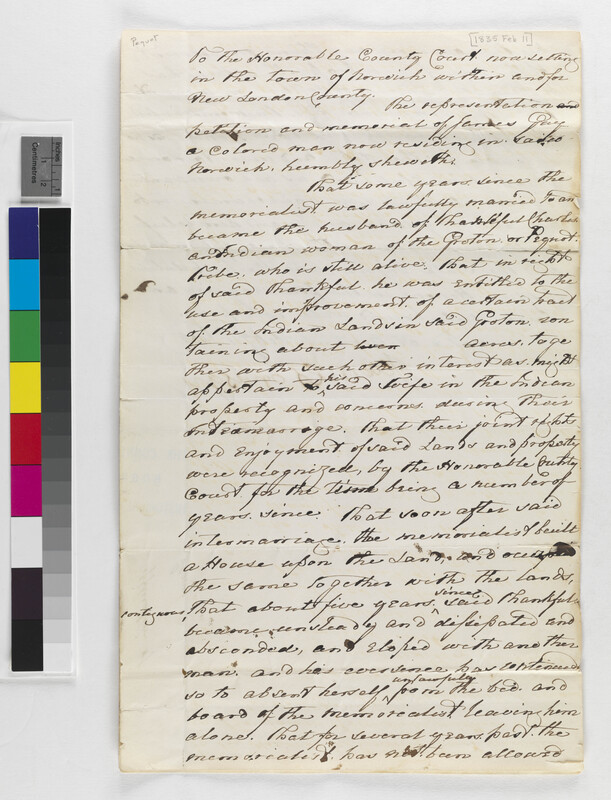 Pequot
[1835 Feb 11]
To the Honorable County Court now setting
in the town of Norwich within and for
New London County.
The representation and
petition and memorial of James Guy
a colored man now residing in said
Norwich, humbly sheweth,
That some years since the
memorialist was lawfully married to an
became the husband of Thankful Charles
an Indian woman of the Groton or Pequot
Tribe, who is still alive. That in right
of said Thankful he was entitled to the
use and improvement of a certain tract
of the Indian Lands in said Groton con
taining about acres, toge
ther with such other interest as might
appertain to his said Wife in the Indian
property and concerns during their
intermarriage. That their joint rights
and Enjoyment of said Lands and property
were recognized, by the Honorable County
Court for the time being a number of
years since. That soon after said
intermarriage, the memorialist built
a House upon the Land, and occupied
the same together with the lands,
contiguous, That about five years since said Thankful
became unsteady and dissipated and
absconded, and Eloped with another
man, and has ever since has continued
so to absent herself unlawfully from the bed and
board of the memorialist leaving him
alone. That for several years past the
memorialist has not been allowed
Centimetres
Inches
1
2